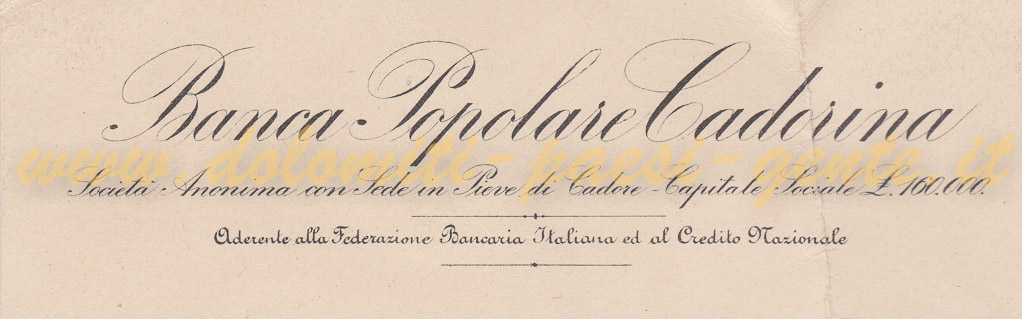 Banca Popolare Cadorina
www.dolomiti-paesi-gente.it
Società Anonima con Sede in Pieve di Cadore - Capitale Sociale £. 160.000.
Aderente alla Federazione Bancaria Italiana ed al Credito Nazionale